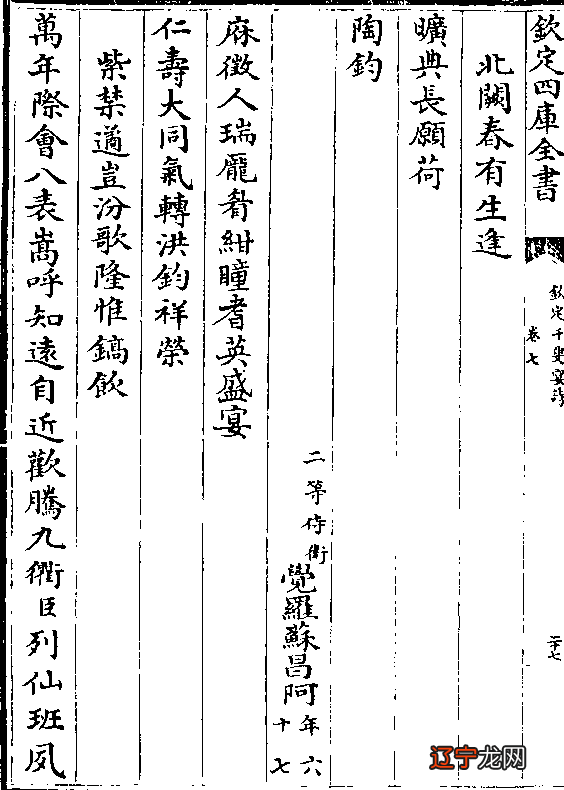 欽定四庫全書
欽定千叟宴詩
卷七
二十七
北闕春有生逢
曠典長願荷
陶鈞
二等侍衛覺羅蘇昌阿年六十七
庥徵人瑞厖眉紺瞳耆英盛宴
仁壽大同氣轉洪鈞祥榮
紫禁邁豈汾歌隆惟鎬飲
萬年際會八表嵩呼知遠自近歡騰九衢臣列仙班夙
辽宁龙网